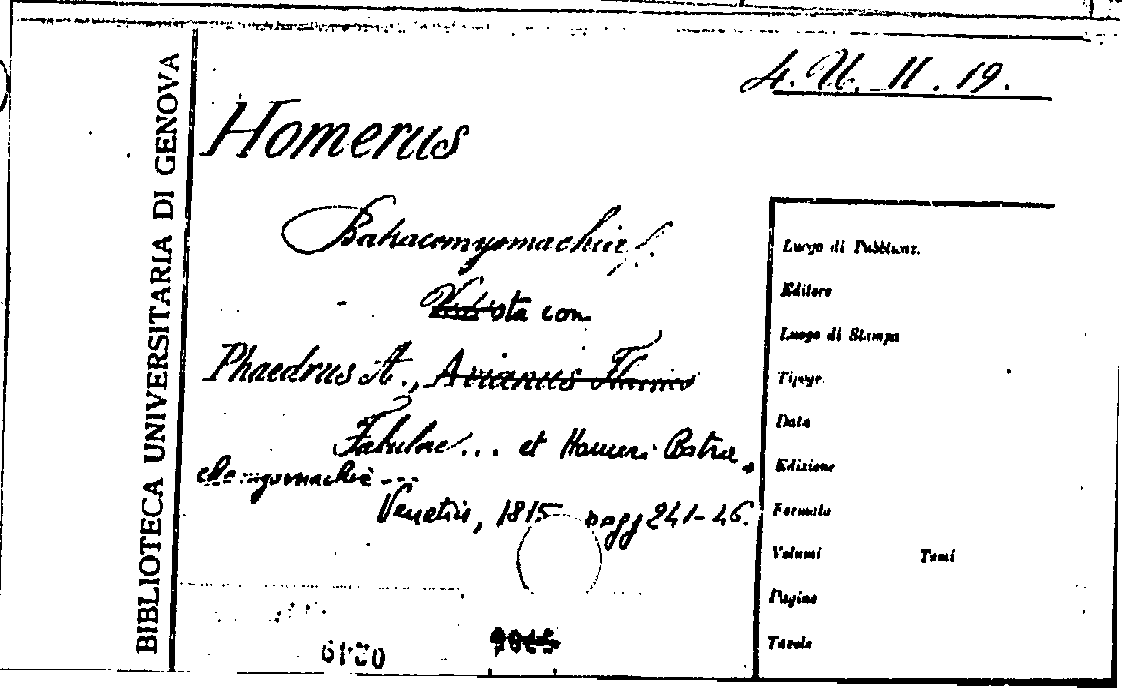 4. U. II. 19.
BIBLIOTECA UNIVERSITARIA DI GENOVA
Homerus
Batracomyomachia
sta con
Phaedrus A., Avianus
Fabulae... et Homeri Batra
chomyomachia ...
Venetiis, 1815 pagg 241-46.
Luogo di Pubblicaz.
Editore
Luogo di Stampa
Tipogr.
Data
Edizione
Formato
Volumi Tomi
Pagine
Tavole